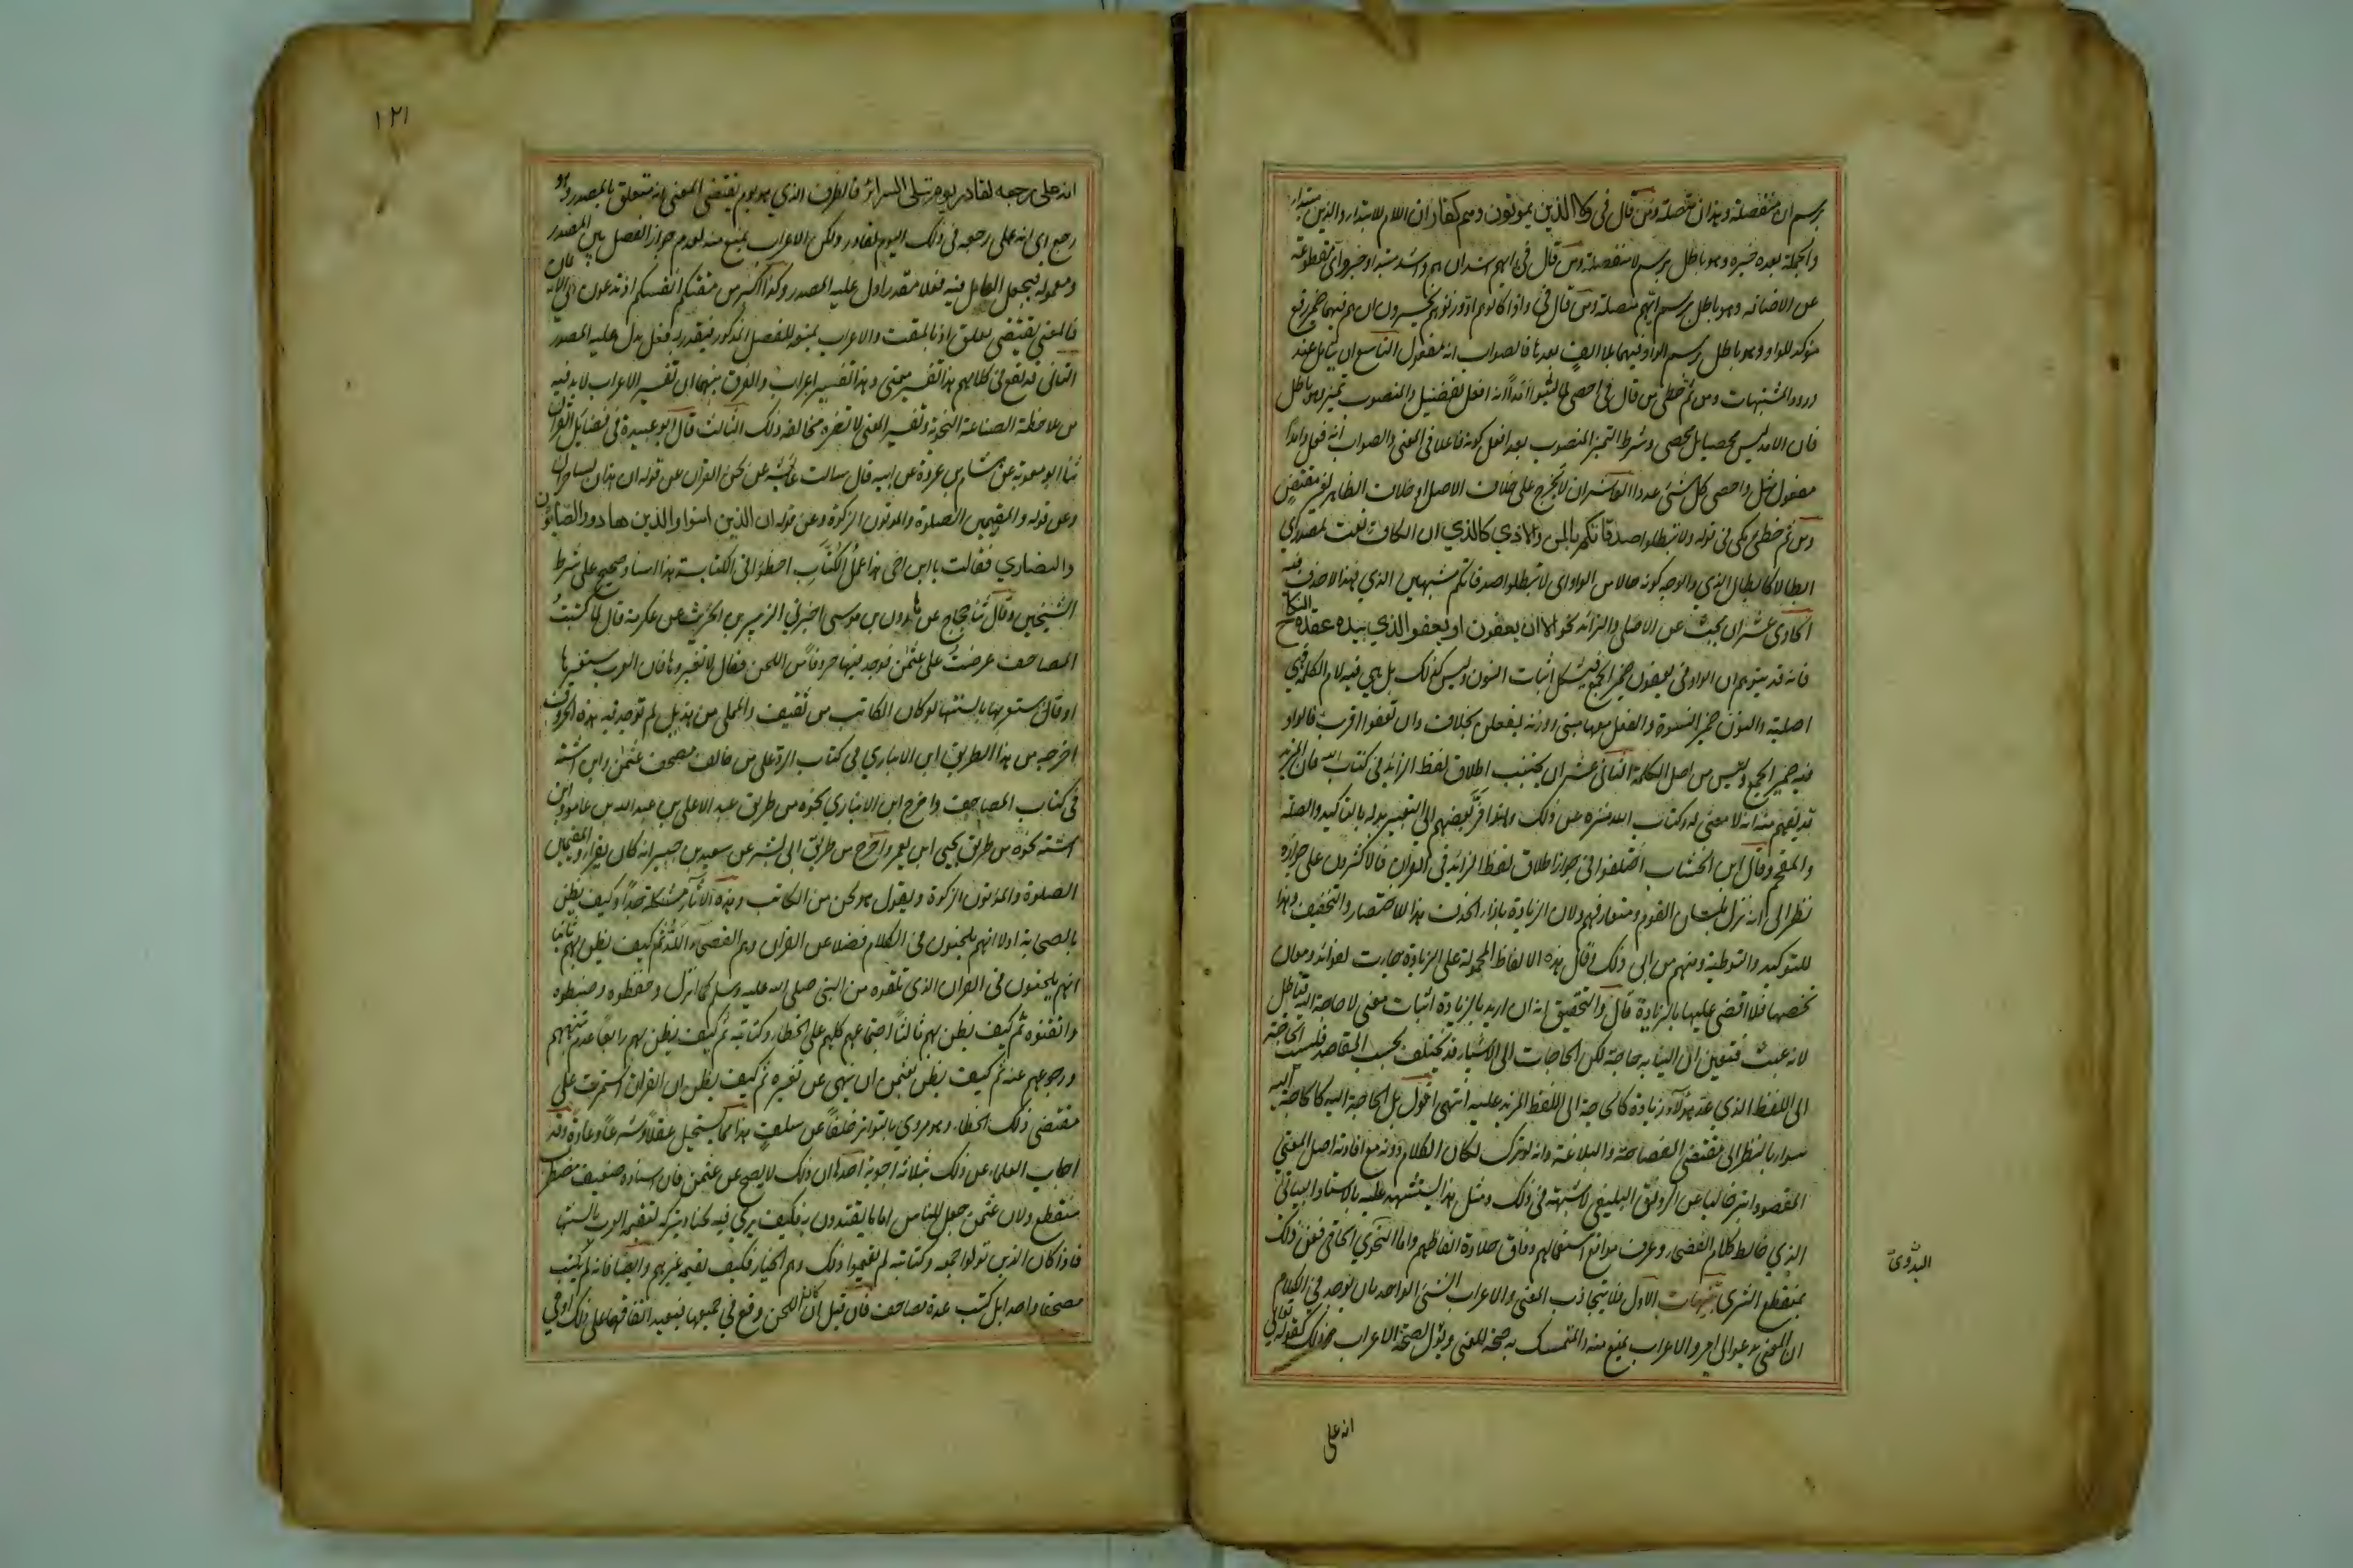 برسم ان منفصلة وهذان متصلة ومن قال فى ولا الذين يموتون وهم كفار ان اللام للابتداء والذين مبتدا
والجملة بعده خبره وهو باطل برسم لا منفصلة ومن قال فى ايهم اشد ان هم واشد مبتدا وخبر واى مقطوعة
عن الاضافه وهو باطل برسم ايهم متصلة ومن قال فى واذا كالوهم او وزنوهم يخسرون ان هم فيهما ضمير رفع
مؤكد للواو وهو باطل برسم الواو فيهما بلا الف بعدها فالصواب انه مفعول التاسع ان يتامل عند
ورود المشتبهات ومن ثم خطئ من قال فى احصى لما لبثوا امدا انه افعل تفضيل والمنصوب تميز وهو باطل
فان الامد ليس محصيا بل محصى وشرط التميز المنصوب بعد افعل كونه فاعلا فى المعنى والصواب انه فعل وامدا
مفعول مثل واحصى كل شئ عددا العاشر ان لا يخرج على خلاف الاصل او خلاف الظاهر لغير مقتض
ومن ثم خطئ مكى فى قوله ولا تبطلوا صدقاتكم بالمن والاذى كالذي ان الكاف نعت لمصدر اي
ابطالا كابطال الذي والوجه كونه حالا من الواو اى لا تبطلوا صدقاتكم مشبهين الذي فهذا لا حذف فيه
الحادى عشر ان يبحث عن الاصلى والزائد نحو الا ان يعفون او يعفو الذي بيده عقدة النكاح
فانه قد يتوهم ان الواو فى يعفون ضمير الجمع فيشكل اثبات النون وليس كذلك بل هي فيه لام الكلمة فهي
اصلية والنون ضمير النسوة والفعل معها مبنى ووزنه يفعلن بخلاف وان تعفوا اقرب فالواو
فيه ضمير الجمع وليس من اصل الكلمة الثانى عشر ان يجتنب اطلاق لفظ الزائد فى كتاب الله فان الزايد
قد يفهم منه انه لا معنى له وكتاب الله منزه عن ذلك ولهذا فر بعضهم الى التعبير بدله بالتاكيد والصلة
والمقحم وقال ابن الخشاب اختلفوا فى جواز اطلاق لفظ الزائد فى القرآن فالاكثرون على جوازه
نظرا الى انه نزل بلسان القوم ومتعارفهم ولان الزيادة بازاء الحذف هذا للاختصار والتخفيف وهذا
للتوكيد والتوطية ومنهم من ابى ذلك وقال هذه الالفاظ المحمولة على الزيادة جاءت لفوائد ومعان
تخصها فلا اقضى عليها بالزيادة قال والتحقيق انه ان اريد بالزيادة اثبات معنى لا حاجة اليه فباطل
لانه عبث فتعين ان الينا به حاجة لكن الحاجات الى الاشياء قد تختلف بحسب المقاصد فليست الحاجة
الى اللفظ الذي عده هؤلاء زيادة كالحاجة الى اللفظ المزيد عليه انتهى اقول بل الحاجة اليه كالحاجة اليه
سواء بالنظر الى مقتضى الفصاحة والبلاغة وانه لو ترك لكان الكلام دونه مع افادته اصل المعنى
المقصود ابتر خاليا عن الرونق البليغى لا شبهة فى ذلك ومثل هذا يستشهد عليه بالاسناد البيانى
الذي خالط كلام الفصحاء وعرف مواقع استعمالهم وذاق حلاوة الفاظهم واما النحوي الجافى فعن ذلك
بمنقطع الثرى تنبيهات الاول قد يتجاذب المعنى والاعراب الشئ الواحد بان يوجد فى الكلام
ان المعنى يدعو الى امر والاعراب يمنع منه والمتمسك به صحة المعنى ويؤل لصحة الاعراب وذلك كقوله تعالى
البدوى
انه على
١٢١
انه على رجعه لقادر يوم تبلى السرائر فالظرف الذي هو يوم يقتضى المعنى انه متعلق بالمصدر وهو
رجع اى انه على رجعه فى ذلك اليوم لقادر ولكن الاعراب يمنع منه لعدم جواز الفصل بين المصدر
ومعموله فيجعل العامل فيه فعلا مقدرا دل عليه المصدر وكذا اكبر من مقتكم انفسكم اذ تدعون الى الايمان
فالمعنى يقتضى تعلق اذ بالمقت والاعراب يمنعه للفصل المذكور فيقدر له فعل يدل عليه المصدر
الثانى قد يقع فى كلامهم هذا تفسير معنى وهذا تفسير اعراب والفرق بينهما ان تفسير الاعراب لا بد فيه
من ملاحظة الصناعة النحوية وتفسير المعنى لا تضره مخالفة ذلك الثالث قال ابو عبيدة فى فضائل القرآن
ثنا ابو معوية عن هشام بن عروة عن ابيه قال سالت عايشة عن لحن القرآن عن قوله ان هذان لساحران
وعن قوله والمقيمين الصلوة والموتون الزكوة وعن قوله ان الذين امنوا والذين هادوا والصابئون
والنصاري فقالت يا ابن اخى هذا عمل الكتاب اخطؤا فى الكتابة هذا اسناد صحيح على شرط
الشيخين وقال ثنا حجاج عن هارون بن موسى اخبرني الزبير بن الخريث عن عكرمة قال لما كتبت
المصاحف عرضت على عثمن فوجد فيها حروفا من اللحن فقال لا تغيروها فان العرب ستغيرها
او قال ستعربها بالسنتها لو كان الكاتب من ثقيف والمملى من هذيل لم توجد فيه هذه الحروف
اخرجه من هذا الطريق ابن الانباري فى كتاب الرد على من خالف مصحف عثمن وابن اشتة
فى كتاب المصاحف واخرج ابن الانباري نحوه من طريق عبد الاعلى بن عبد الله بن عامر وابن
اشتة نحوه من طريق يحيى ابن يعمر واخرج من طريق ابى بشر عن سعيد بن جبير انه كان يقرأ والمقيمين
الصلوة والموتون الزكوة ويقول هو لحن من الكاتب وهذه الآثار مشكلة جدا وكيف يظن
بالصحابة اولا انهم يلحنون فى الكلام فضلا عن القرآن وهم الفصحاء اللد ثم كيف يظن بهم ثانيا
انهم يلحنون فى القرآن الذى تلقوه من النبى صلى الله عليه وسلم كما انزل وحفظوه وضبطوه
واتقنوه ثم كيف يظن بهم ثالثا اجتماعهم كلهم على الخطاء وكتابته ثم كيف يظن بهم رابعا عدم تنبههم
ورجوعهم عنه ثم كيف يظن بعثمن ان ينهى عن تغيره ثم كيف يظن ان القرآن استمرت على
مقتضى ذلك الخطاء وهو مروي بالتواتر خلفا عن سلف هذا مما يستحيل عقلا وشرعا وعادة وقد
اجاب العلماء عن ذلك بثلاثة اجوبة احدها ان ذلك لا يصح عن عثمن فان اسناده ضعيف مضطر
منقطع ولان عثمن جعل للناس اماما يقتدون به فكيف يرى فيه لحنا ويتركه لتقيمه العرب بالسنتها
فاذا كان الذين تولوا جمعه وكتابته لم يقيموا ذلك وهم الخيار فكيف يقيمه غيرهم وايضا فانه لم يكتب
مصحفا واحدا بل كتب عدة مصاحف فان قيل ان اللحن وقع فى جميعها فبعيد اتفاقها على ذلك او فى